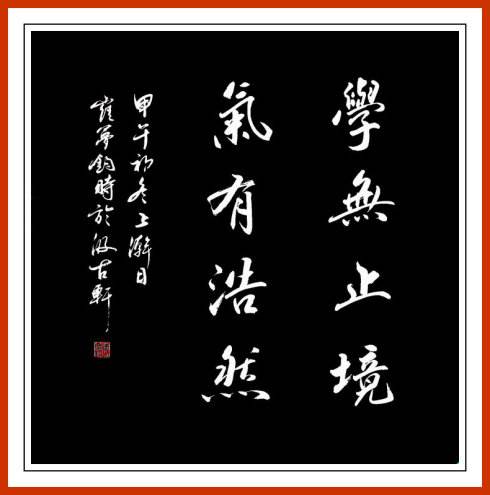 學無止境
氣有浩然
甲午初冬上澣日
崔夢鈞時於汲古軒